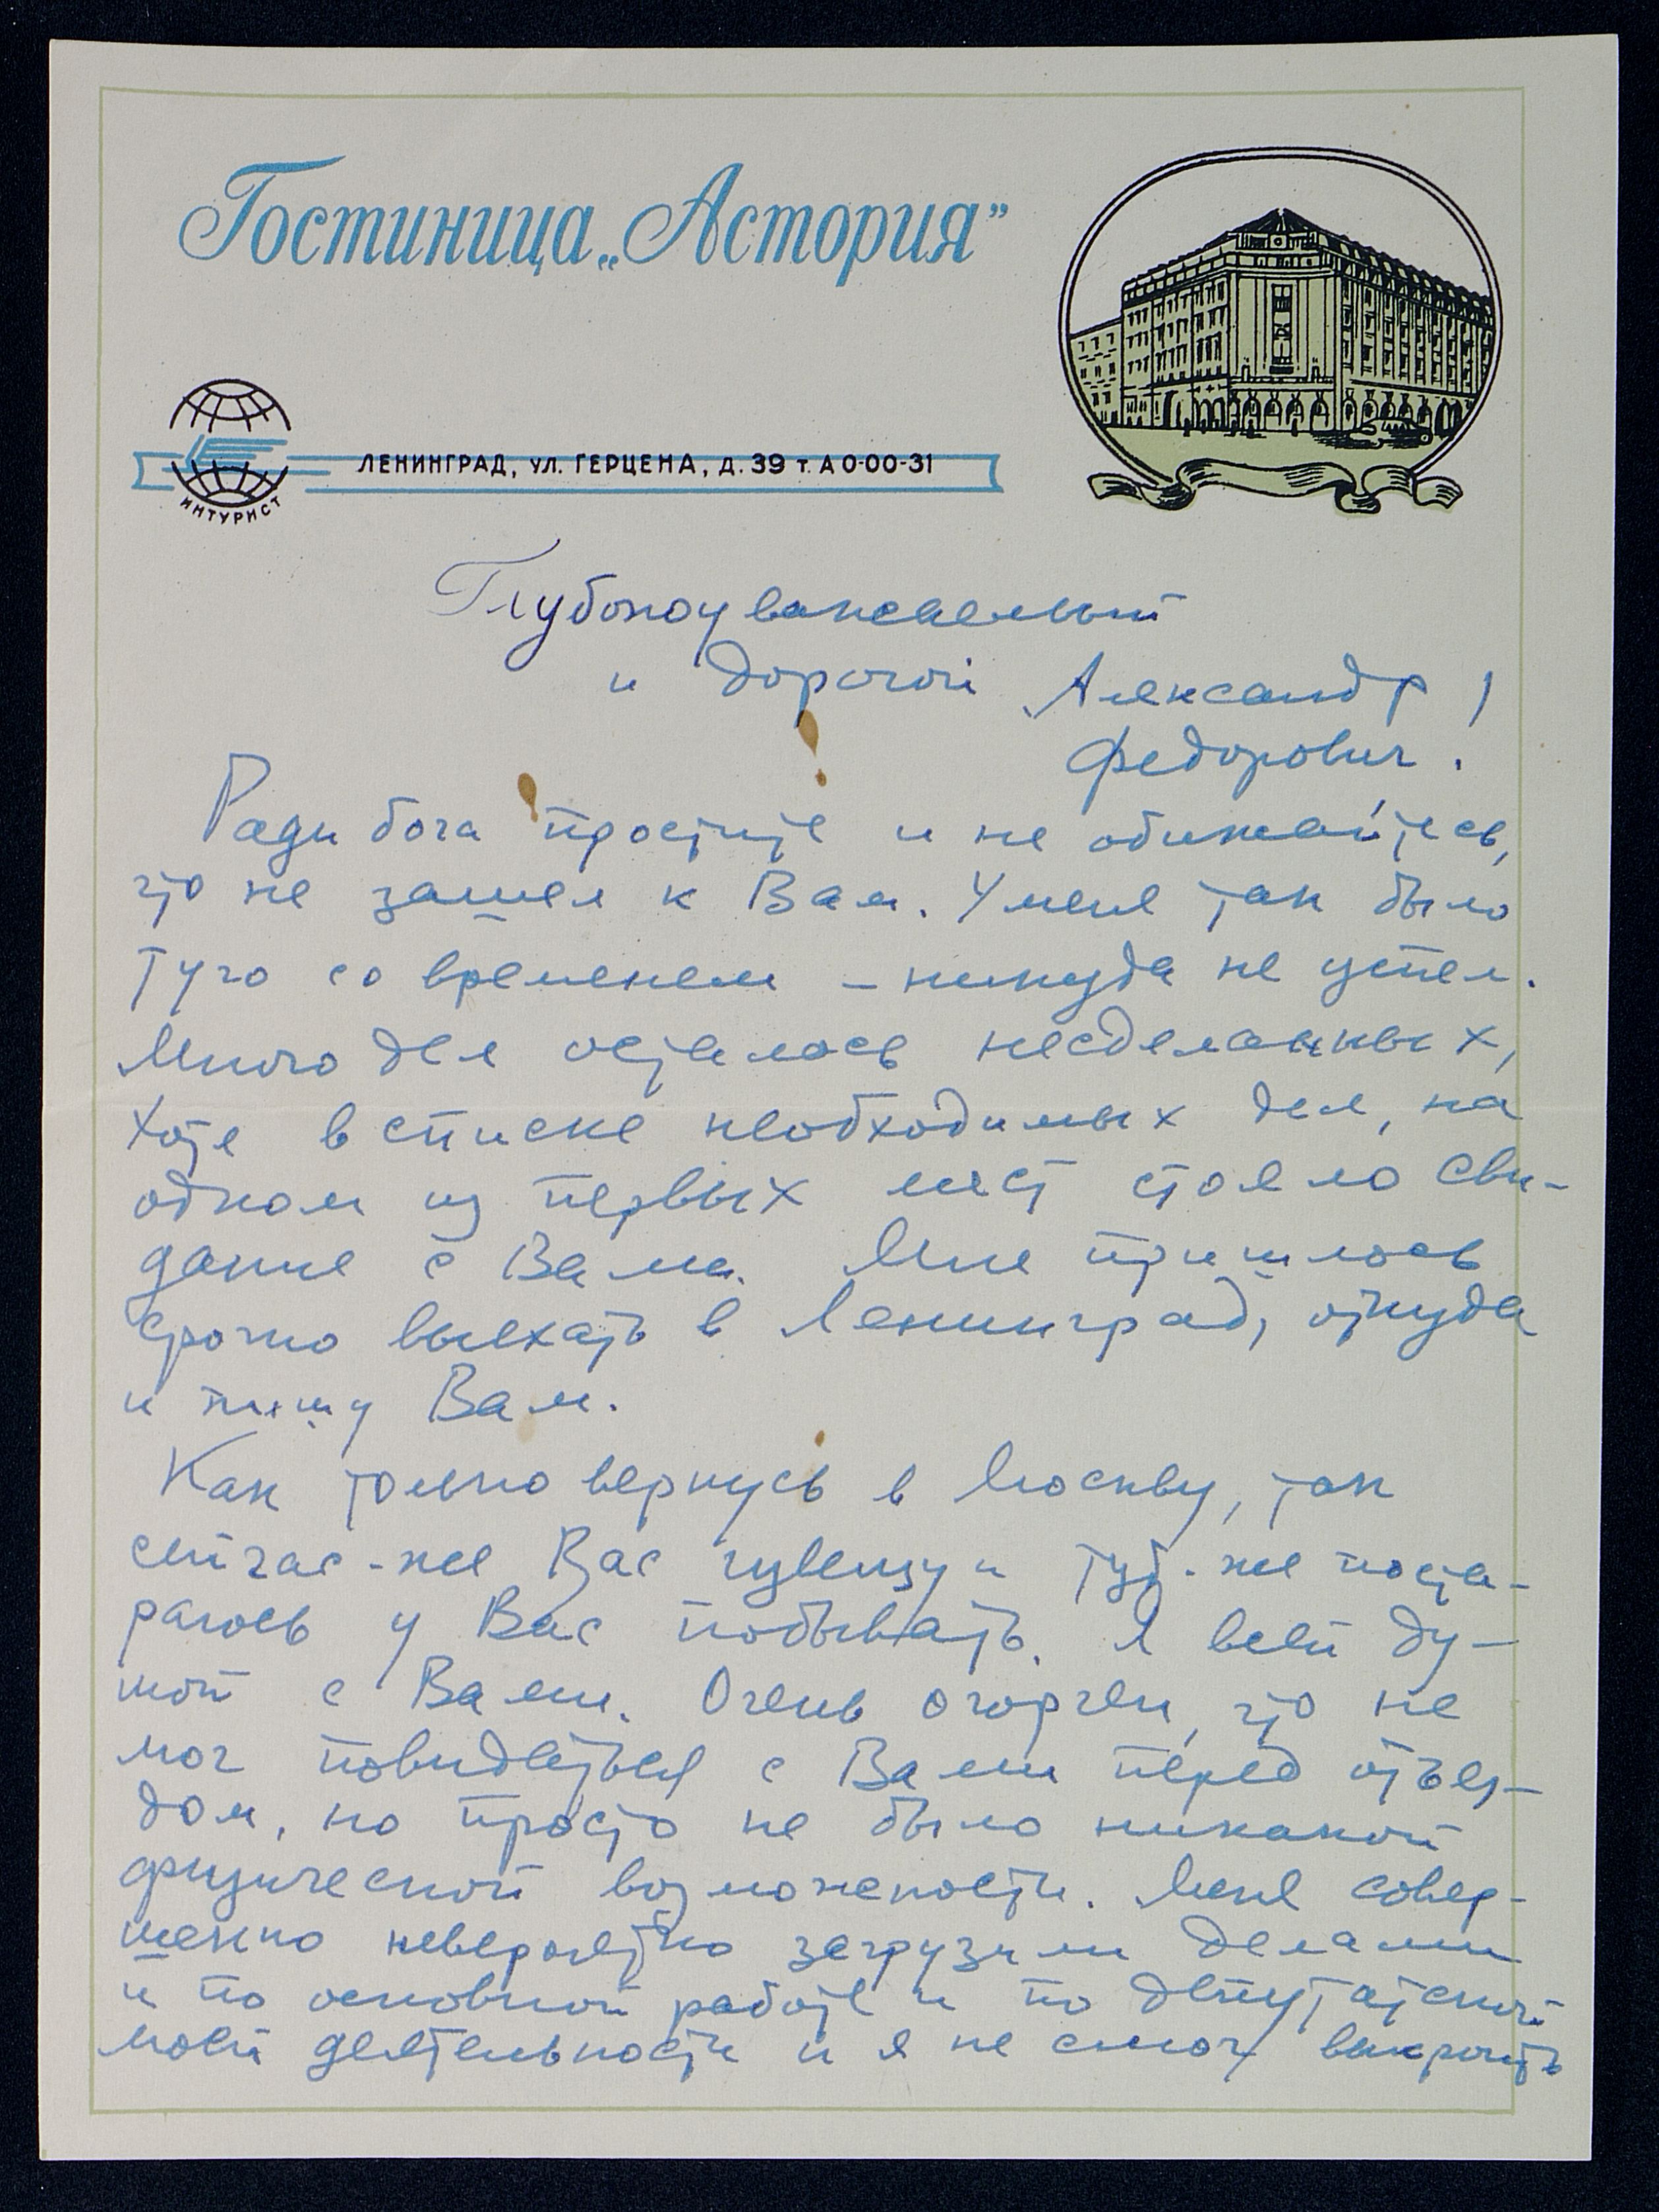 Гостиница „Астория”
ЛЕНИНГРАД, ул. ГЕРЦЕНА, д. 39 т. А 0-00-31
ИНТУРИСТ
Глубокоуважаемый
и дорогой Александр
Федорович!
Ради бога простите и не обижайтесь,
что не зашел к Вам. У меня так было
туго со временем – никуда не успел.
Много дел осталось несделанных,
хотя в списке необходимых дел, на
одном из первых мест стояло сви-
дание с Вами. Мне пришлось
срочно выехать в Ленинград, откуда
и пишу Вам.
Как только вернусь в Москву, так
сейчас-же Вас извещу и тут-же поста-
раюсь у Вас побывать. Я всей ду-
шой с Вами. Очень огорчен, что не
мог повидаться с Вами перед отъез-
дом, но просто не было никакой
физической возможности. Меня совер-
шенно невероятно загрузили делами
и по основной работе и по депутатской
моей деятельности и я не смог выкроить